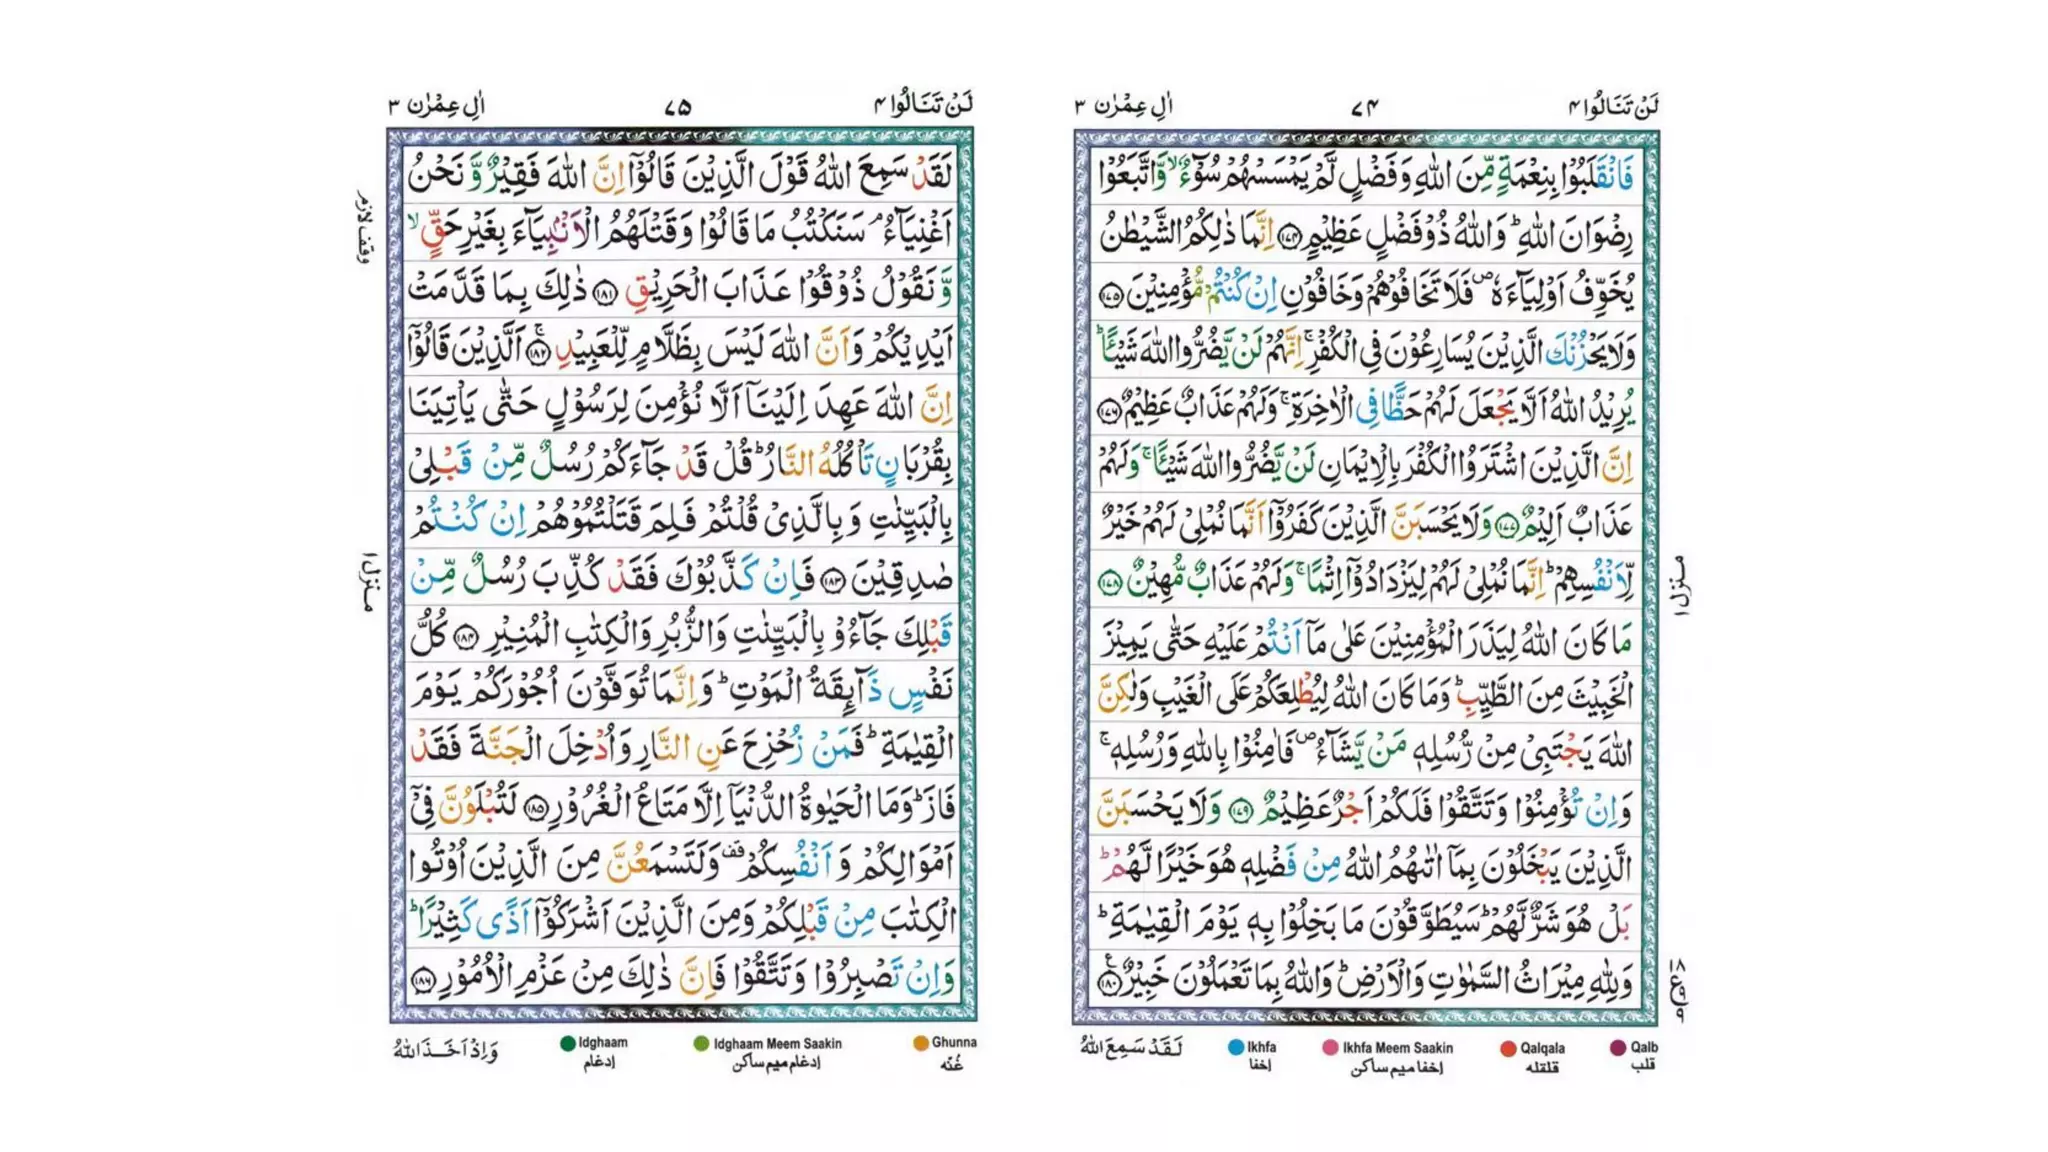 لَنۡ تَنَالُوا ۴
۷۴
اٰلِ عِمۡرٰن ۳
فَانۡقَلَبُوۡا بِنِعۡمَةٍ مِّنَ اللّٰهِ وَفَضۡلٍ لَّمۡ يَمۡسَسۡهُمۡ سُوۡٓءٌ ۙ وَّاتَّبَعُوۡا
رِضۡوَانَ اللّٰهِ ؕ وَاللّٰهُ ذُوۡ فَضۡلٍ عَظِيۡمٍ ﴿۱۷۴﴾ اِنَّمَا ذٰلِكُمُ الشَّيۡطٰنُ
يُخَوِّفُ اَوۡلِيَآءَهٗ ۪ فَلَا تَخَافُوۡهُمۡ وَخَافُوۡنِ اِنۡ كُنۡتُمۡ مُّؤۡمِنِيۡنَ ﴿۱۷۵﴾
وَلَا يَحۡزُنۡكَ الَّذِيۡنَ يُسَارِعُوۡنَ فِى الۡكُفۡرِ ۚ اِنَّهُمۡ لَنۡ يَّضُرُّوا اللّٰهَ شَيۡـًٔا ؕ
يُرِيۡدُ اللّٰهُ اَلَّا يَجۡعَلَ لَهُمۡ حَظًّا فِى الۡاٰخِرَةِ ۚ وَلَهُمۡ عَذَابٌ عَظِيۡمٌ ﴿۱۷۶﴾
اِنَّ الَّذِيۡنَ اشۡتَرَوُا الۡكُفۡرَ بِالۡاِيۡمَانِ لَنۡ يَّضُرُّوا اللّٰهَ شَيۡـًٔا ۚ وَلَهُمۡ
عَذَابٌ اَلِيۡمٌ ﴿۱۷۷﴾ وَلَا يَحۡسَبَنَّ الَّذِيۡنَ كَفَرُوۡۤا اَنَّمَا نُمۡلِىۡ لَهُمۡ خَيۡرٌ
لِّاَنۡفُسِهِمۡ ؕ اِنَّمَا نُمۡلِىۡ لَهُمۡ لِيَزۡدَادُوۡۤا اِثۡمًا ۚ وَلَهُمۡ عَذَابٌ مُّهِيۡنٌ ﴿۱۷۸﴾
مَا كَانَ اللّٰهُ لِيَذَرَ الۡمُؤۡمِنِيۡنَ عَلٰى مَاۤ اَنۡتُمۡ عَلَيۡهِ حَتّٰى يَمِيۡزَ
الۡخَبِيۡثَ مِنَ الطَّيِّبِ ؕ وَمَا كَانَ اللّٰهُ لِيُطۡلِعَكُمۡ عَلَى الۡغَيۡبِ وَلٰكِنَّ
اللّٰهَ يَجۡتَبِىۡ مِنۡ رُّسُلِهٖ مَنۡ يَّشَآءُ ۪ فَاٰمِنُوۡا بِاللّٰهِ وَرُسُلِهٖ ۚ
وَاِنۡ تُؤۡمِنُوۡا وَتَتَّقُوۡا فَلَكُمۡ اَجۡرٌ عَظِيۡمٌ ﴿۱۷۹﴾ وَلَا يَحۡسَبَنَّ
الَّذِيۡنَ يَبۡخَلُوۡنَ بِمَاۤ اٰتٰٮهُمُ اللّٰهُ مِنۡ فَضۡلِهٖ هُوَ خَيۡرًا لَّهُمۡ ؕ
بَلۡ هُوَ شَرٌّ لَّهُمۡ ؕ سَيُطَوَّقُوۡنَ مَا بَخِلُوۡا بِهٖ يَوۡمَ الۡقِيٰمَةِ ؕ
وَلِلّٰهِ مِيۡرَاثُ السَّمٰوٰتِ وَالۡاَرۡضِ ؕ وَاللّٰهُ بِمَا تَعۡمَلُوۡنَ خَبِيۡرٌ ﴿۱۸۰﴾
منزل ۱
لَقَدۡ سَمِعَ اللّٰهُ
Ikhfa Ikhfa Meem Saakin Qalqala Qalb
إخفا إخفا ميم ساكن قلقله قلب
لَنۡ تَنَالُوا ۴
۷۵
اٰلِ عِمۡرٰن ۳
لَقَدۡ سَمِعَ اللّٰهُ قَوۡلَ الَّذِيۡنَ قَالُوۡۤا اِنَّ اللّٰهَ فَقِيۡرٌ وَّنَحۡنُ
اَغۡنِيَآءُ ۘ سَنَكۡتُبُ مَا قَالُوۡا وَقَتۡلَهُمُ الۡاَنۡۢبِيَآءَ بِغَيۡرِ حَقٍّ ۙ
وَّنَقُوۡلُ ذُوۡقُوۡا عَذَابَ الۡحَرِيۡقِ ﴿۱۸۱﴾ ذٰلِكَ بِمَا قَدَّمَتۡ
اَيۡدِيۡكُمۡ وَاَنَّ اللّٰهَ لَيۡسَ بِظَلَّامٍ لِّلۡعَبِيۡدِ ۚ ﴿۱۸۲﴾ اَلَّذِيۡنَ قَالُوۡۤا
اِنَّ اللّٰهَ عَهِدَ اِلَيۡنَاۤ اَلَّا نُؤۡمِنَ لِرَسُوۡلٍ حَتّٰى يَاۡتِيَنَا
بِقُرۡبَانٍ تَاۡكُلُهُ النَّارُ ؕ قُلۡ قَدۡ جَآءَكُمۡ رُسُلٌ مِّنۡ قَبۡلِىۡ
بِالۡبَيِّنٰتِ وَبِالَّذِىۡ قُلۡتُمۡ فَلِمَ قَتَلۡتُمُوۡهُمۡ اِنۡ كُنۡتُمۡ
صٰدِقِيۡنَ ﴿۱۸۳﴾ فَاِنۡ كَذَّبُوۡكَ فَقَدۡ كُذِّبَ رُسُلٌ مِّنۡ
قَبۡلِكَ جَآءُوۡ بِالۡبَيِّنٰتِ وَالزُّبُرِ وَالۡكِتٰبِ الۡمُنِيۡرِ ﴿۱۸۴﴾ كُلُّ
نَفۡسٍ ذَآٮِٕقَةُ الۡمَوۡتِ ؕ وَاِنَّمَا تُوَفَّوۡنَ اُجُوۡرَكُمۡ يَوۡمَ
الۡقِيٰمَةِ ؕ فَمَنۡ زُحۡزِحَ عَنِ النَّارِ وَاُدۡخِلَ الۡجَنَّةَ فَقَدۡ
فَازَ ؕ وَمَا الۡحَيٰوةُ الدُّنۡيَاۤ اِلَّا مَتَاعُ الۡغُرُوۡرِ ﴿۱۸۵﴾ لَتُبۡلَوُنَّ فِىۡۤ
اَمۡوَالِكُمۡ وَاَنۡفُسِكُمۡ ۟ وَلَتَسۡمَعُنَّ مِنَ الَّذِيۡنَ اُوۡتُوا
الۡكِتٰبَ مِنۡ قَبۡلِكُمۡ وَمِنَ الَّذِيۡنَ اَشۡرَكُوۡۤا اَذًى كَثِيۡرًا ؕ
وَاِنۡ تَصۡبِرُوۡا وَتَتَّقُوۡا فَاِنَّ ذٰلِكَ مِنۡ عَزۡمِ الۡاُمُوۡرِ ﴿۱۸۶﴾
وقف لازم
منزل ۱
وَاِذۡ اَخَذَ اللّٰهُ
Idghaam Idghaam Meem Saakin Ghunna
إدغام إدغام ميم ساكن غُنّه